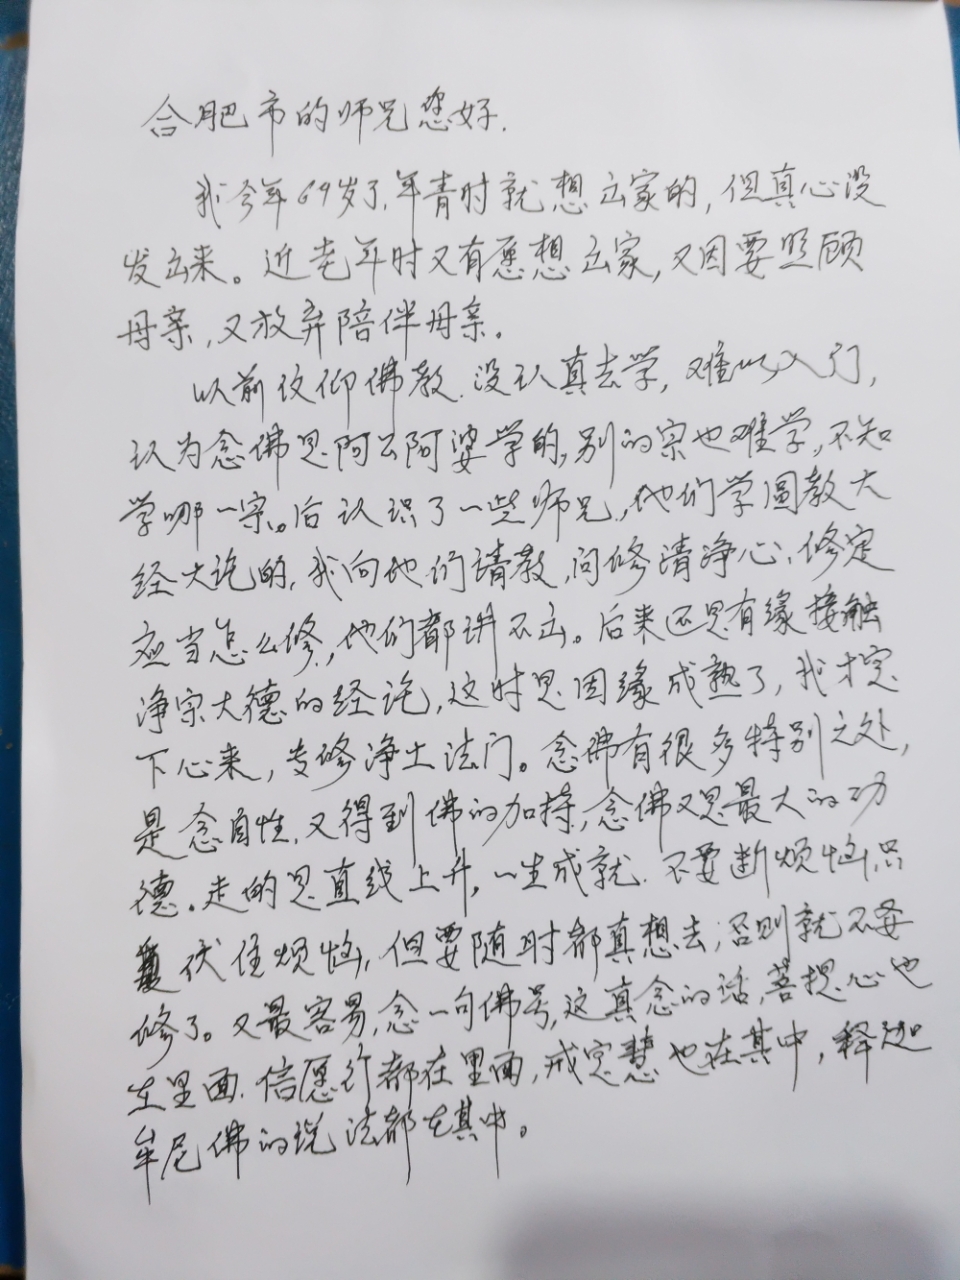 合肥市的师兄您好.
我今年69岁了,年青时就想出家的,但真心没
发出来。近老年时又有愿想出家,又因要照顾
母亲,又放弃陪伴母亲。
以前信仰佛教.没认真去学,难以入门,
认为念佛是阿公阿婆学的,别的宗也难学,不知
学哪一宗。后认识了一些师兄,他们学圓教大
经大论的,我向他们请教,问修清净心、修定
应当怎么修,他们都讲不出。后来还是有缘接触
净宗大德的经论,这时是因缘成熟了,我才定
下心来,专修净土法门。念佛有很多特别之处,
是念自性.又得到佛的加持,念佛又是最大的功
德。走的是直线上升,一生成就.不要断烦恼,只
伏住烦恼,但要随时都真想去,否则就不要
修了。又最容易,念一句佛号,这真念的话,菩提心也
在里面.信愿行都在里面,戒定慧也在其中,释迦
牟尼佛的说法都在其中。